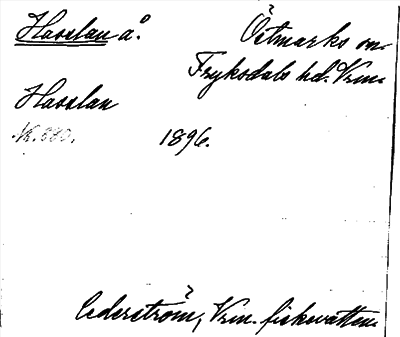 Hasslan å. Östmarks sn.
Fryksdals hd. Vrm.
Hasslan
1896.
Cederström, Vrm. fiskevatten.